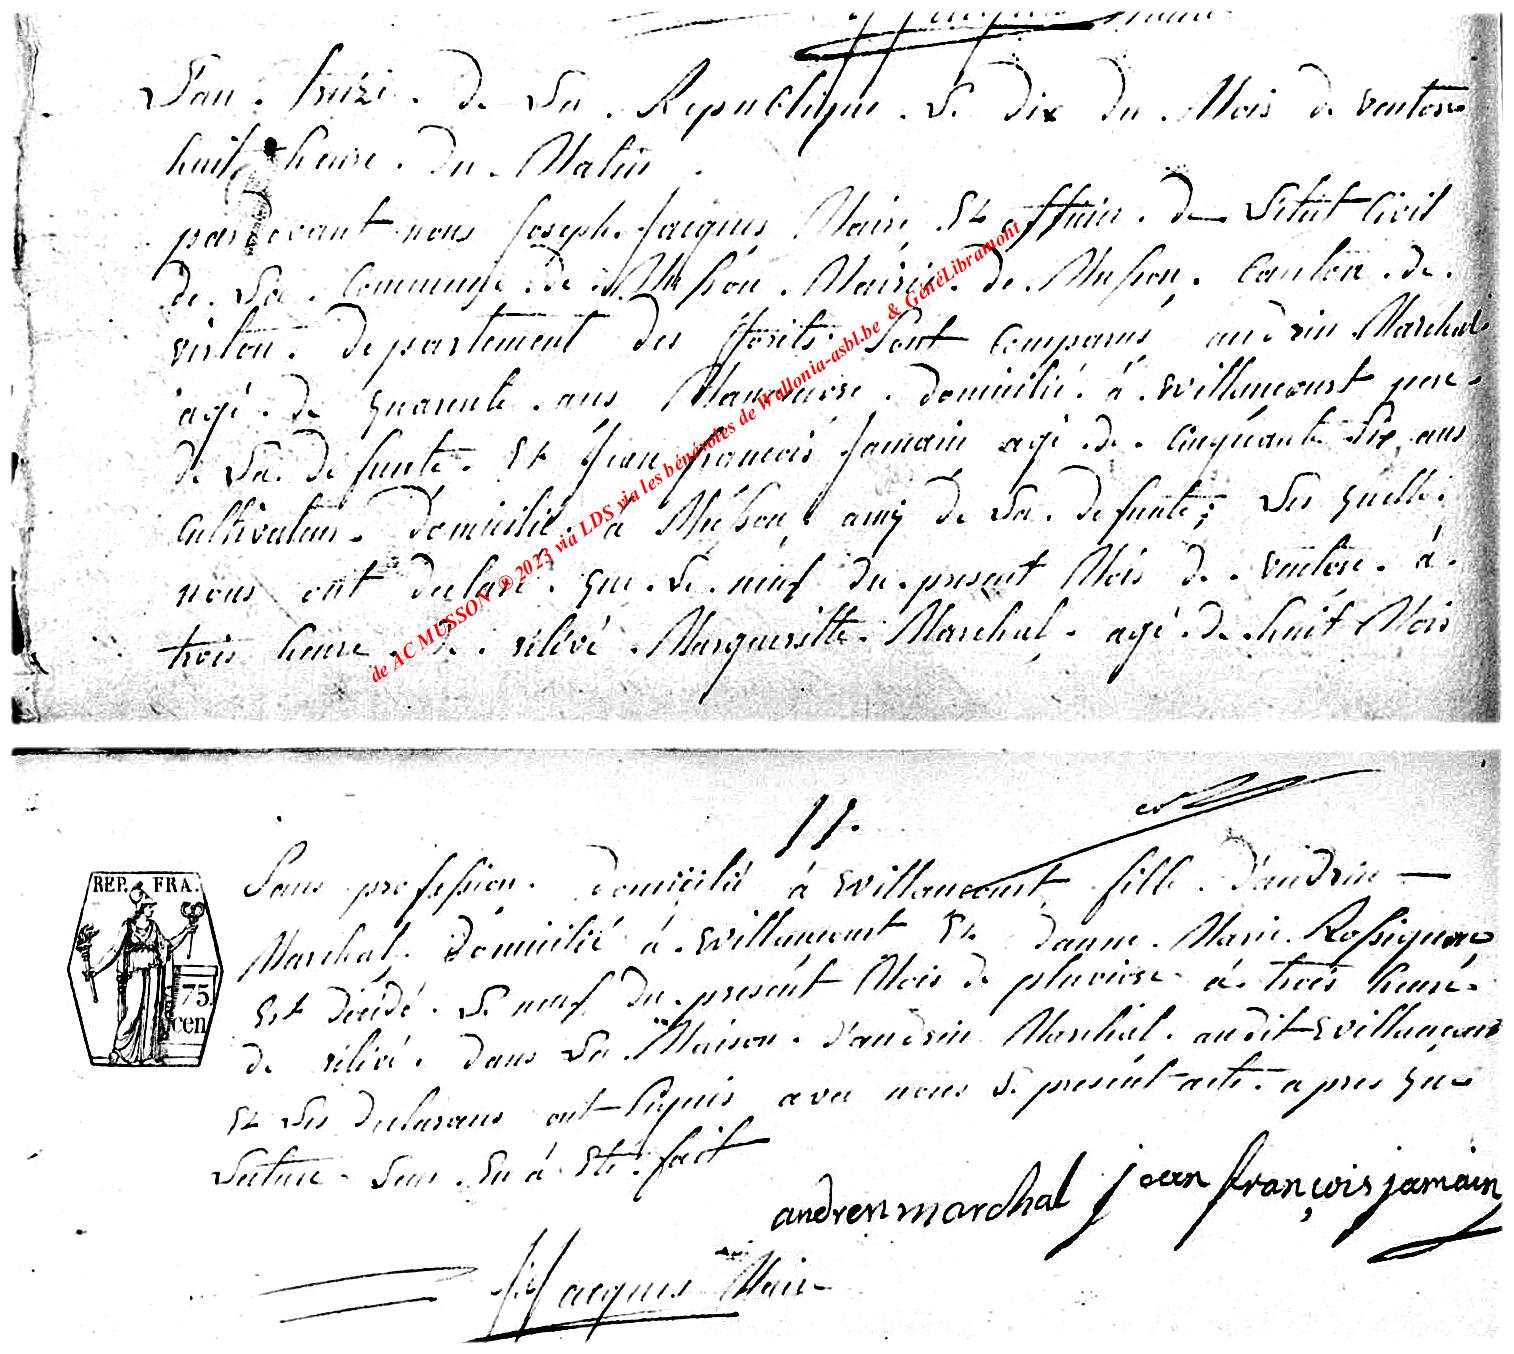 L'an treize de La Republique Le dix du Mois de ventose
huit heure du Matin
pardevant nous Joseph Jacques Maire Et officier de L'état Civil
de La Commune de Musson Mairie de Musson, Canton de
virton departement des fforêts Sont Comparus andrin Marchal
agé de quarente ans Manouvre domicilié à Willancourt pere
de La defunte Et Jean françois Jamain agé de Cinquante Six ans
Cultivateur domicilié à Musson, amÿ de La defunte; Les quelle
nous ont déclaré que Le neuf du present Mois de ventose à
trois heure de rélévé Margueritte Marchal agé de huit Mois
11.
Sans profession domicilié à Willancourt fille d'andrin
Marchal domicilié à Willancourt Et danne Marie Rossignon
Est décédé Le neuf du present Mois de pluviose à trois heure
de rélévé dans La Maison d'andrin Marchal audit Willancourt
Et Les declarans ont Signés avec nous Le present acte apres que
Lecture Leur En à Eté fait
andren marchal jean françois jamain
JJacques Maire
REP. FRA.
75
cen
de AC MUSSON ® 2023 via LDS via les bénévoles de Wallonia-asbl.be & GénéLibramont